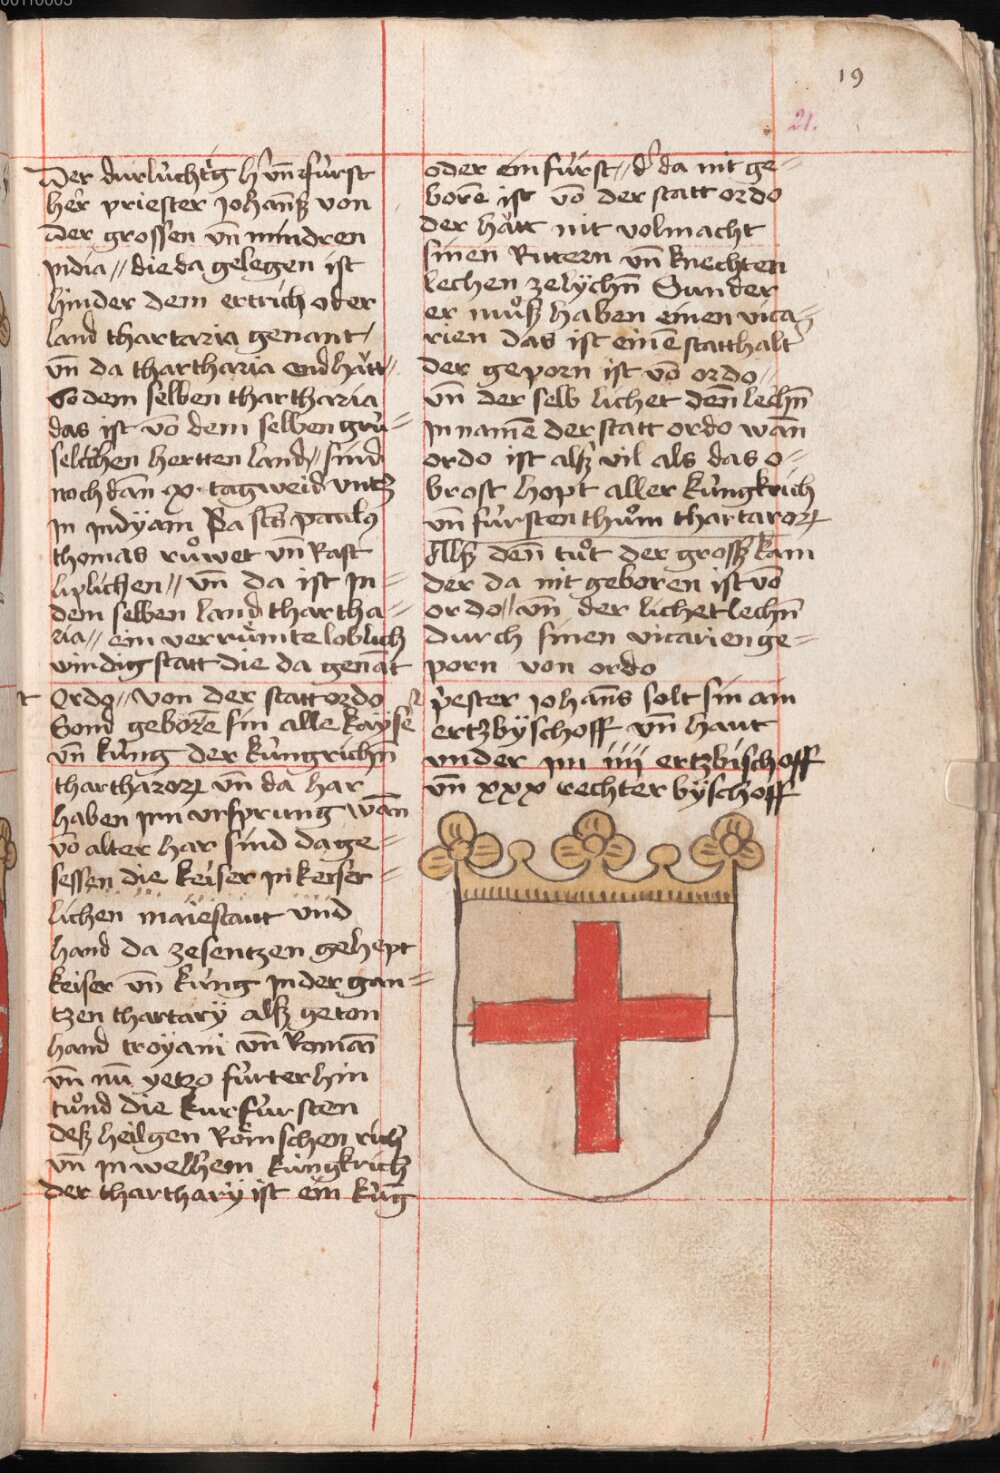 19
21.
Der durlúchtig h͛ vn̄ fúrst
her priester Johañs von
der grossen vn̄ mindren
India // die da gelegen ist
hinder dem ertrich oder
land thartaria genant /
vn̄ da thartharia end hàtt //
So dem selben thartharia
das ist vō dem selben grú=
selichen hertten land // sind
noch dān x · tagweid vntz
in indÿam Da sc̄ts paulꝯ
thomas růwet vn̄ Rast
liplichen // vn̄ da ist in=
dem selben land thartha=
ria // ein verrùmte loblich
wirdig statt die da genāt
Ordo // von der statt ordo
Sond geborē sin alle kaÿse
vn̄ kúng der kúngrichn̄
thartharoꝝ vn̄ da har
haben irin vrsprung wān
vō alter har sind da ge=
sessen die keiser in keiser=
lichen maiestaut vnd
hand da zesentzen gehept
keiser vn̄ kúng in der gan=
tzen thartarÿ alsz geton
hand troÿani vn̄ Romāī
vn̄ nū yetzo fúrter hin
tůnd die kurfúrsten
desz heilgen Römschen rich
vn̄ in welhem kúngkrich
der thartharÿ ist ein kúng
oder ein fúrst // d͛ da nit ge=
borē ist vō der statt ordo
der hàtt nit volmacht
sinen Rittern vn̄ knechten
lechen zelÿchn̄ Sunder
er můsz haben einen vica=
rien das ist einē statthalt͛
der geporn ist vō ordo //
vn̄ der selb lichet den̄ lechn̄
In namē der statt ordo wān
ordo ist alsz vil als das o=
brost hopt aller kúngkrich
vn̄ fúrstenthům thartaroꝝ
Alsz den̄ tůt der grosz kam
der da nit geboren ist vō
ordo // vn̄ der lichet lechn̄
durch sinen vicarien ge=
porn von ordo
p͛ester Johans solt sin ain
ertzbÿschoff vn̄ haut
vnder im iiii ertzbischoff
vn̄ xxx rechter bÿschoff